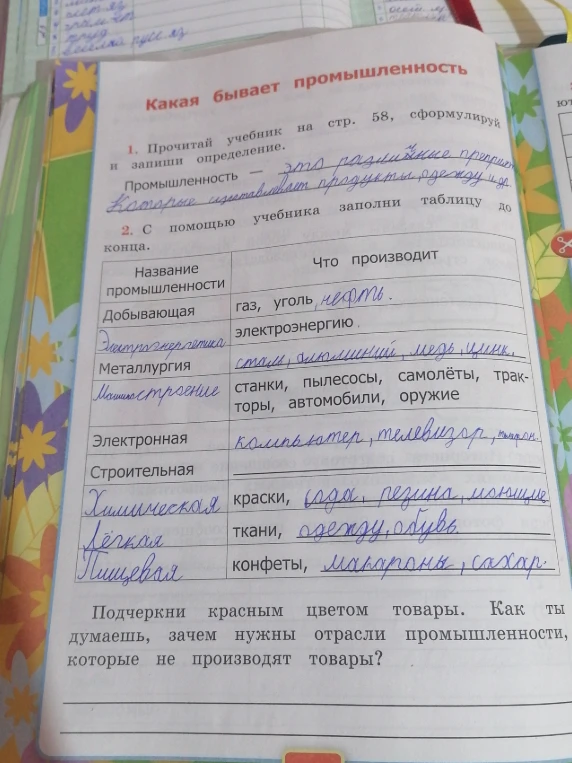 Какая бывает промышленность
1. Прочитай учебник на стр. 58, сформулируй
и запиши определение.
Промышленность — это различные
Которые изготавливает продукты, одежду и др.
2. С помощью учебника заполни таблицу до
конца.
Название промышленности
Что производит
Добывающая
газ, уголь, нефть.
Электроэнергетика
электроэнергию.
Металлургия
стал, алюминий, медь, цинк.
Машиностроение
станки, пылесосы, самолёты, трак-
торы, автомобили, оружие
Электронная
компьютер, телевизор,
Строительная
Химическая
краски, сода, резина, моющие
Лёгкая
ткани, одежду, обувь.
Пищевая
конфеты, макароны, сахар.
Подчеркни красным цветом товары. Как ты
думаешь, зачем нужны отрасли промышленности,
которые не производят товары?